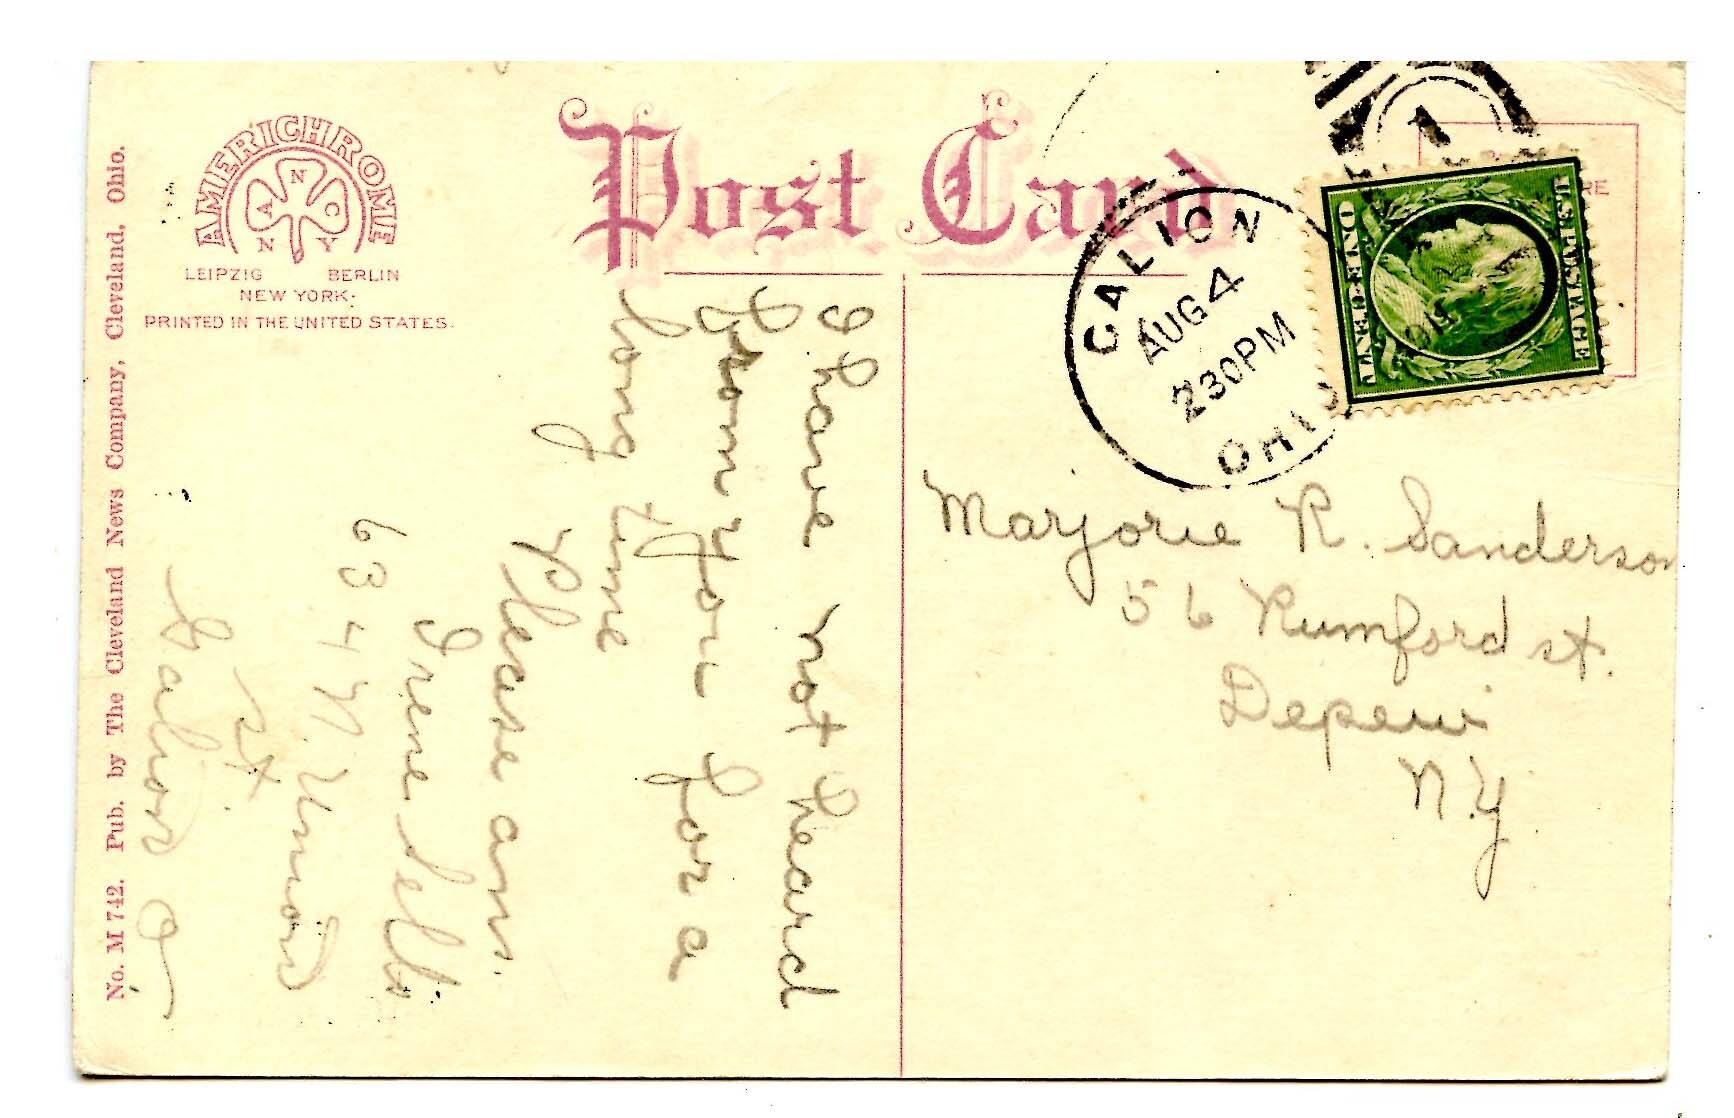 No. M 742. Pub. by The Cleveland News Company, Cleveland, Ohio.
AMERICHROME
N
A C
N Y
LEIPZIG BERLIN
NEW YORK:
PRINTED IN THE UNITED STATES.
Post Card
GALION
AUG 4
230PM
OHIO
1
U.S. POSTAGE
ONE CENT
RE
I have not heard
from you for a
long time
Please ans.
Irene Sells
634 N. Union
St.
Galion O
Marjorie R. Sanderson
56 Rumford st.
Depew
N.Y